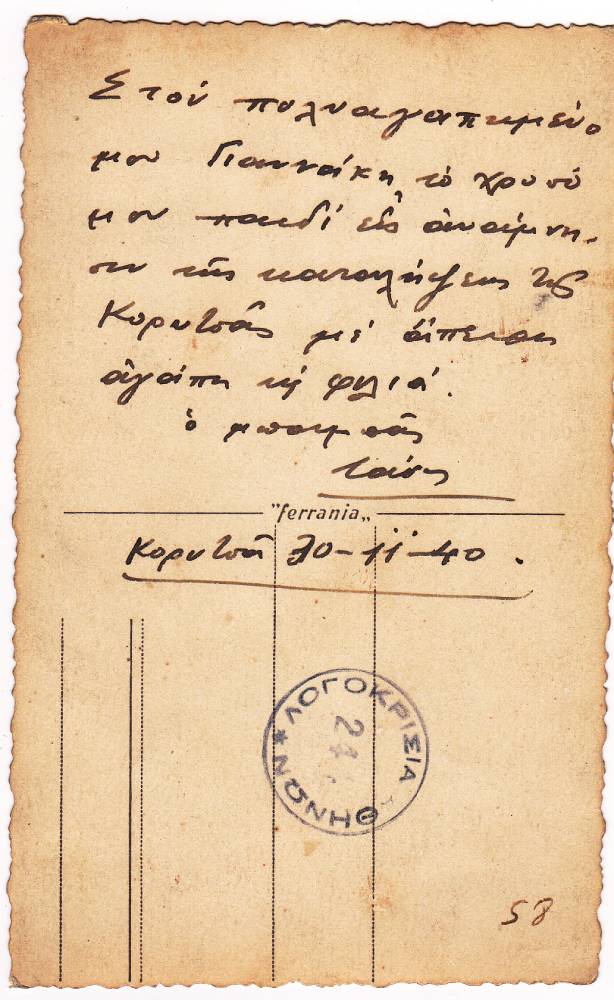 Στον πολυαγαπημένο
μου Γιαννάκη, το χρυσό
μου παιδί εις ανάμνη-
σιν της καταλήψεως της
Κορυτσάς με άπειρη
αγάπη και φιλιά.
ο μπαμπάς
"ferrania„
Κορυτσά 30-11-40.
* ΛΟΓΟΚΡΙΣΙΑ ΑΘΗΝΩΝ
24
58